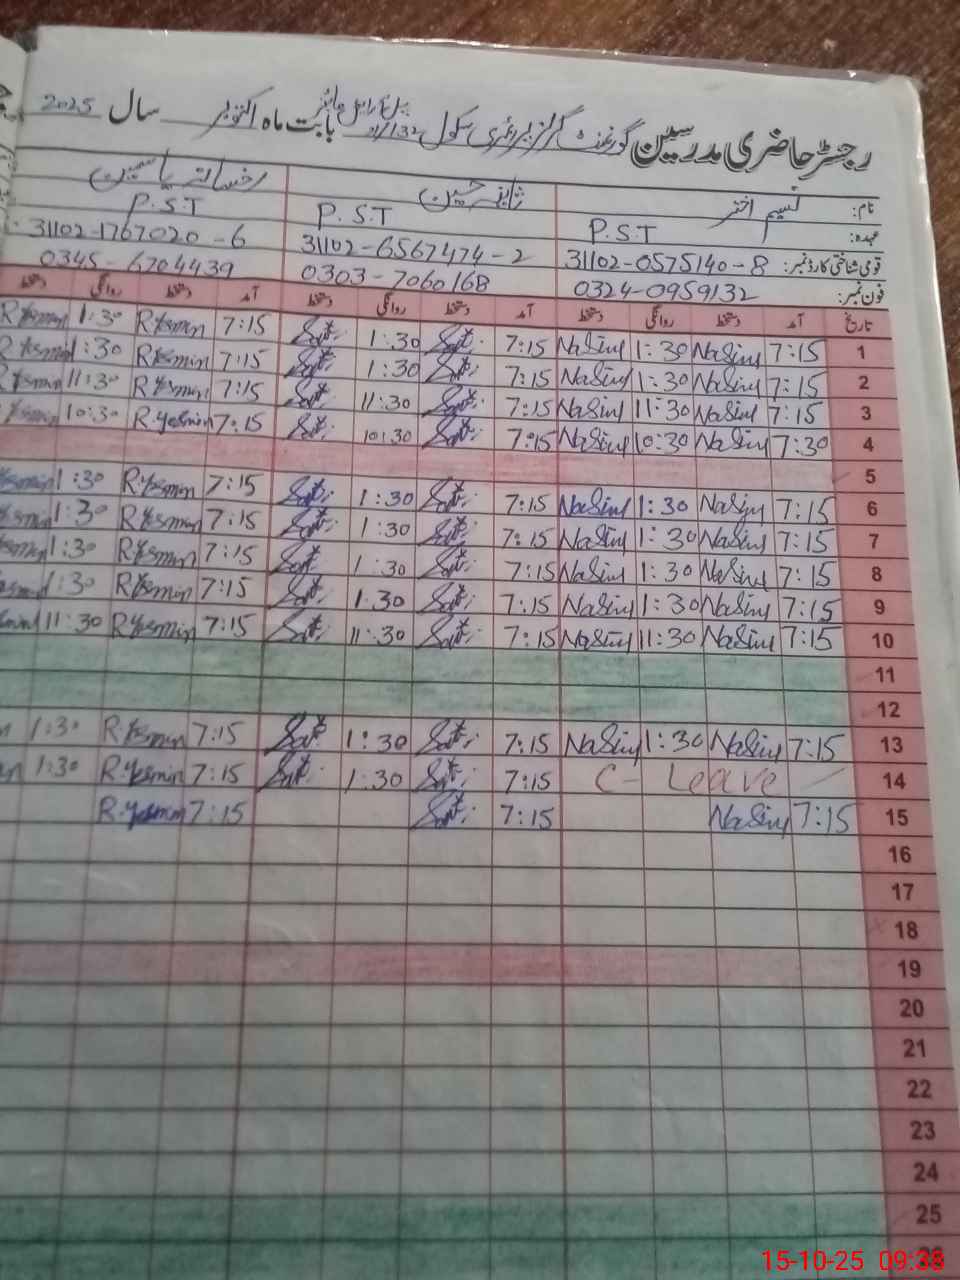 رجسٹر حاضری مدرسین گورنمنٹ گرلز پرائمری سکول 132/ بابت ماہ اکتوبر سال 2025
نام: نسیم اختر ثانیہ حسین رخسانہ یاسمین
عہدہ: P.S.T P.S.T P.S.T
قومی شناختی کارڈ نمبر: 31102-0575140-8 31102-6567474-2 31102-1767020-6
فون نمبر: 0324-0959132 0303-7060168 0345-6704439
تاریخ آمد دستخط روانگی دستخط آمد دستخط روانگی دستخط آمد دستخط روانگی
1 7:15 NaSim 1:30 NaSim 7:15 1:30 7:15 R.Yasmin 1:30 R.Yasmin
2 7:15 NaSim 1:30 NaSim 7:15 1:30 7:15 R.Yasmin 1:30
3 7:15 NaSim 11:30 NaSim 7:15 11:30 7:15 R.Yasmin 11:30
4 7:30 NaSim 10:30 NaSim 7:15 10:30 7:15 R.Yasmin 10:30
5
6 7:15 NaSim 1:30 NaSim 7:15 1:30 7:15 R.Yasmin 1:30
7 7:15 NaSim 1:30 NaSim 7:15 1:30 7:15 R.Yasmin 1:30
8 7:15 NaSim 1:30 NaSim 7:15 1:30 7:15 R.Yasmin 1:30
9 7:15 NaSim 1:30 NaSim 7:15 1:30 7:15 R.Yasmin 1:30
10 7:15 NaSim 11:30 NaSim 7:15 11:30 7:15 R.Yasmin 11:30
11
12
13 7:15 NaSim 1:30 NaSim 7:15 1:30 7:15 R.Yasmin 1:30
14 C-Leave 7:15 1:30 7:15 R.Yasmin 1:30
15 7:15 NaSim 7:15 7:15 R.Yasmin
16
17
18
19
20
21
22
23
24
25
15-10-25 09:38